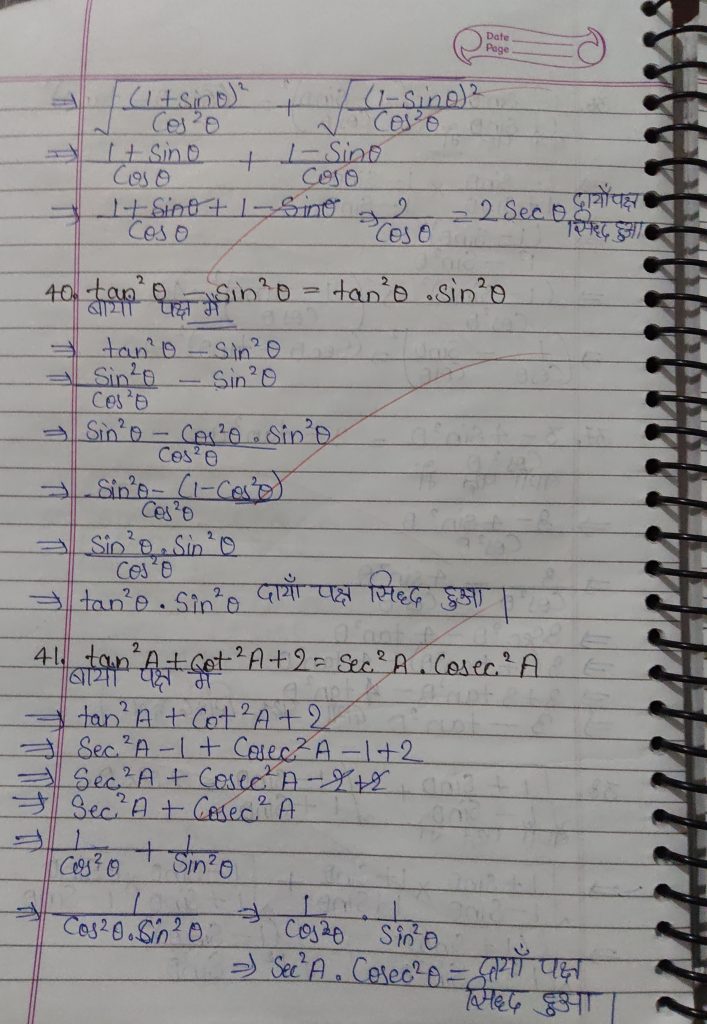 Date
Page
⇒ √((1+sinθ)²/Cos²θ) + √((1-Sinθ)²/Cos²θ)
⇒ (1+Sinθ)/Cosθ + (1-Sinθ)/Cosθ
⇒ (1+Sinθ+1-Sinθ)/Cosθ ⇒ 2/Cosθ = 2Secθ दायाँ पक्ष सिध्द हुआ
40. tan²θ - Sin²θ = tan²θ . Sin²θ
बायाँ पक्ष में
⇒ tan²θ - Sin²θ
⇒ Sin²θ/Cos²θ - Sin²θ
⇒ (Sin²θ - Cos²θ . Sin²θ)/Cos²θ
⇒ (Sin²θ - (1-Cos²θ))/Cos²θ
⇒ (Sin²θ . Sin²θ)/Cos²θ
⇒ tan²θ . Sin²θ दायाँ पक्ष सिध्द हुआ |
41. tan²A + Cot²A + 2 = Sec²A . Cosec²A
बायाँ पक्ष में
⇒ tan²A + Cot²A + 2
⇒ Sec²A - 1 + Cosec²A - 1 + 2
⇒ Sec²A + Cosec²A - 2 + 2
⇒ Sec²A + Cosec²A
⇒ 1/Cos²θ + 1/Sin²θ
⇒ 1/(Cos²θ . Sin²θ) ⇒ 1/Cos²θ . 1/Sin²θ
⇒ Sec²A . Cosec²θ = दायाँ पक्ष
सिध्द हुआ |